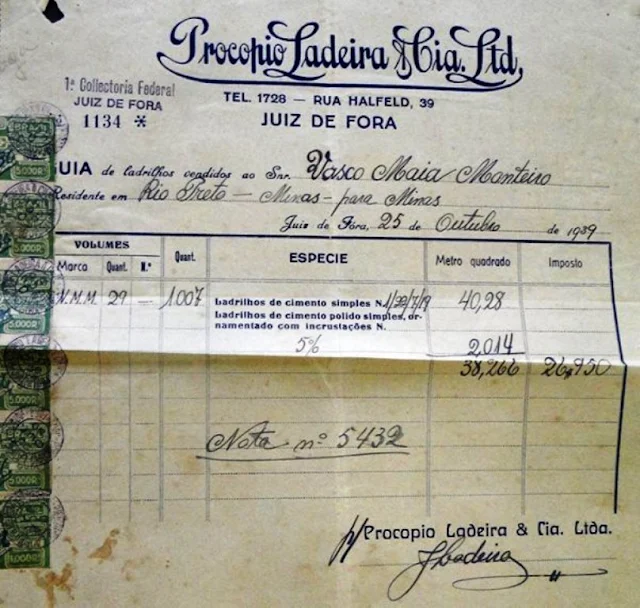 Procopio Ladeira & Cia. Ltd.
1ª Collectoria Federal
JUIZ DE FORA
1134 *
TEL. 1728 — RUA HALFELD, 39
JUIZ DE FORA
GUIA de ladrilhos vendidos ao Snr. Vasco Maia Monteiro
Residente em Rio Preto — Minas - para Minas
Juiz de Fóra, 25 de Outubro de 1939
VOLUMES Quant. ESPECIE Metro quadrado Imposto
Marca Quant. N.º
V.M.M. 29 — 1.007 Ladrilhos de cimento simples N. 40,28
Ladrilhos de cimento polido simples, or-
namentado com incrustações N.
5% 2,014
38,266 26,950
Nota nº 5432
p/ Procopio Ladeira & Cia. Ltda.
JLadeira
5.000R
5.000R
5.000R
5.000R
5.000R
5.000R